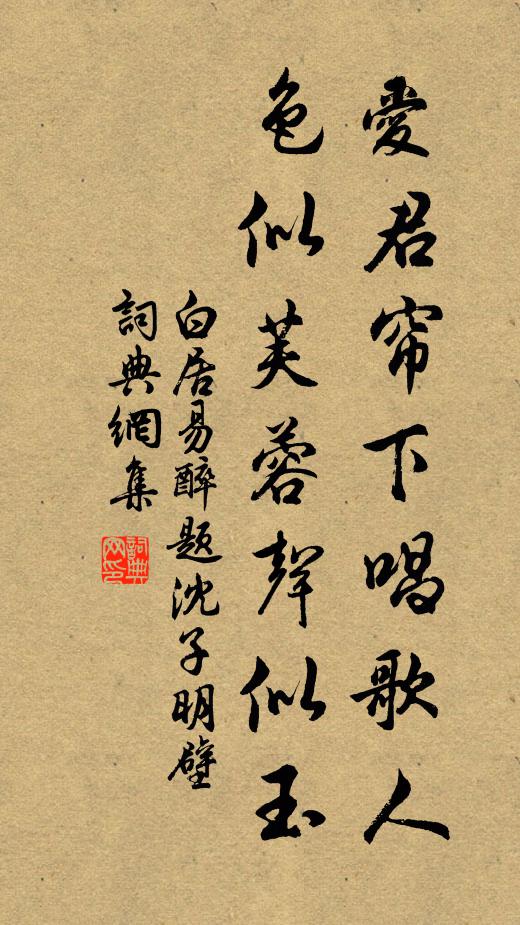 愛君帘下唱歌人
色似芙蓉聲似玉
白居易醉題沈子明壁
詞典網集
詞典
网印